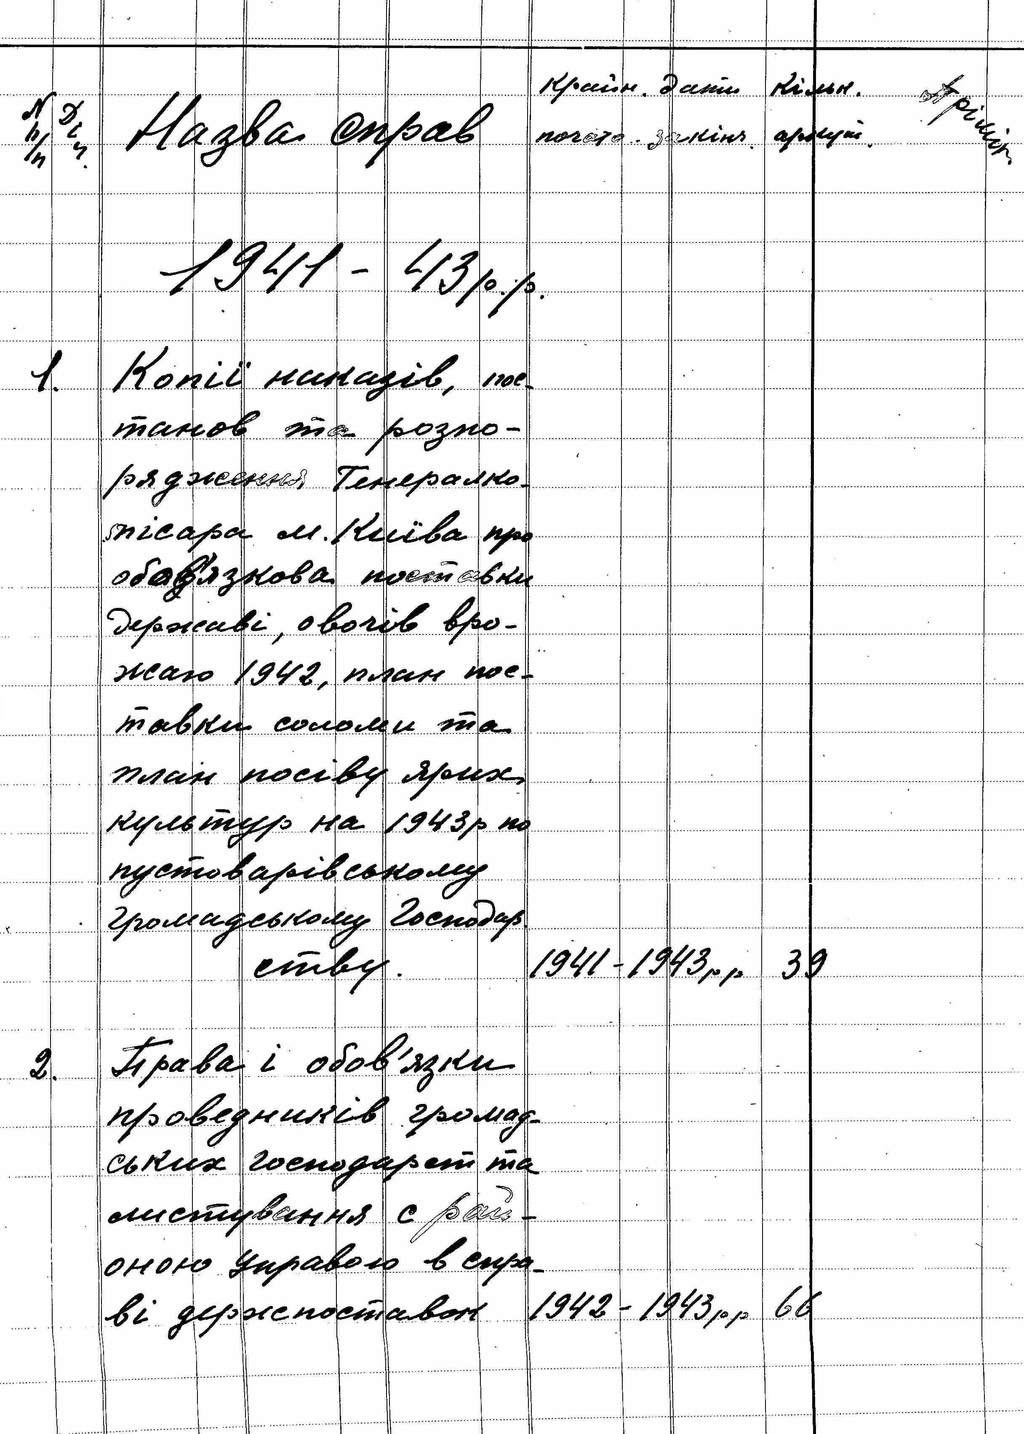 N п/п Діл. Назва справ Крайн. дати Кільк. Приміт.
почато. закінч. аркуш.
1941 - 43 р.р.
1. Копії наказів, пос-
танов та розпо-
рядження Генералко-
місара м. Київа про
обов'язкова поставки
державі, овочів вро-
жаю 1942, план пос-
тавки соломи та
план посіву ярих
культур на 1943р по
пустоварівському
громадському господар
ству. 1941-1943рр 39
2. Права і обов'язки
проведників громад-
ських господарст та
листування с рай-
оною управою в спра-
ві держпоставок 1942-1943рр 66